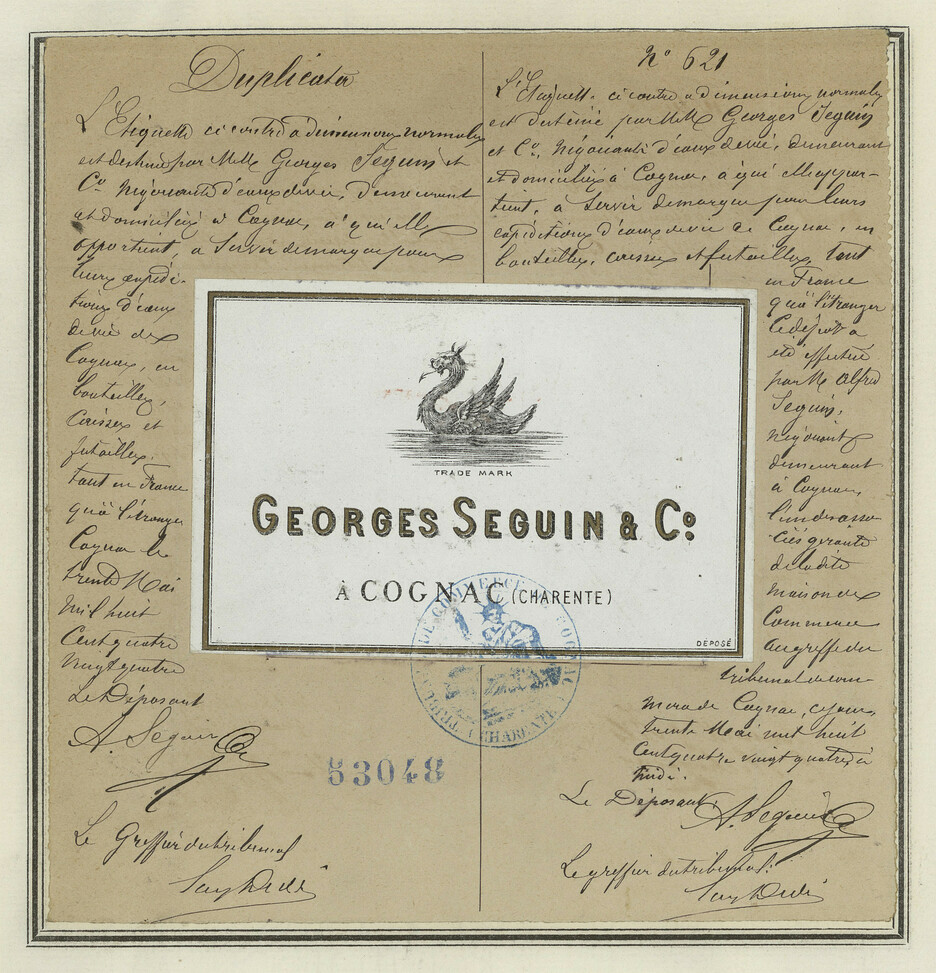 Duplicata
L'Etiquette ci contre a dimensions normales
est destinée par MM Georges Seguin et
Cº Négociants d'eaux de vie, demeurant
et domiciliés à Cognac, à qui elle
appartient, a servir de marque pour
leurs expédi-
tions d'eaux
de vie de
Cognac, en
bouteilles,
Caisses et
futailles.
tant en France
qu'à l'étranger
Cognac le
trente Mai
mil huit
Cent quatre
vingt quatre
Le Déposant
A. Seguin
Le Greffier du tribunal
Nº 621
L'Etiquette ci contre a dimensions normales
est destinée par MM Georges Seguin
et Cº, Négociants d'eaux de vie, demeurant
et domiciliés à Cognac, à qui elle appar-
tient, à servir de marque pour leurs
expéditions d'eaux de vie de Cognac, en
bouteilles, caisses et futailles, tant
en France
qu'à l'étranger
Le dépôt a
été effectué
par M Alfred
Seguin,
Négociant
demeurant
à Cognac,
l'un des asso-
ciés gérants
de la dite
maison de
Commerce
au greffe du
tribunal de com-
merce de Cognac, ce jour,
trente Mai mil huit
Cent quatre vingt quatre à
midi.
Le Déposant,
A. Seguin
Le greffier du tribunal.
TRADE MARK
GEORGES SEGUIN & Cº
À COGNAC (CHARENTE)
DÉPOSÉ
TRIBUNAL DE COMMERCE COGNAC
(CHARENTE)
53048